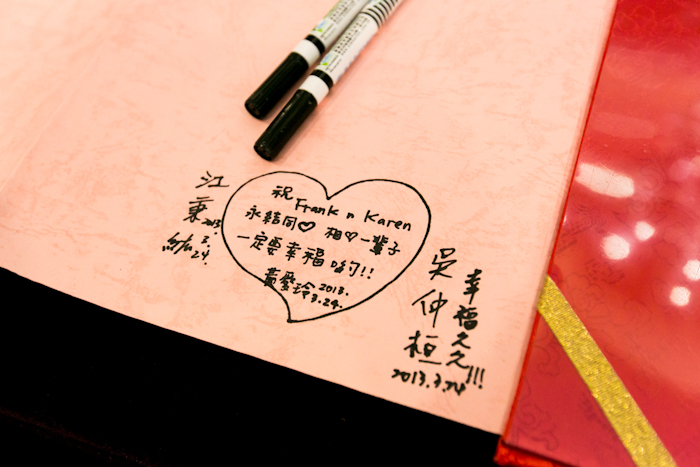 江
秉
2013.
3.
24.
祝 Frank n Karen
永結同♡ 相♡一輩子
一定要幸福喲!!
黃愛玲 2013.
3.24.
吳仲桓
幸福久久!!!
2013.3.24